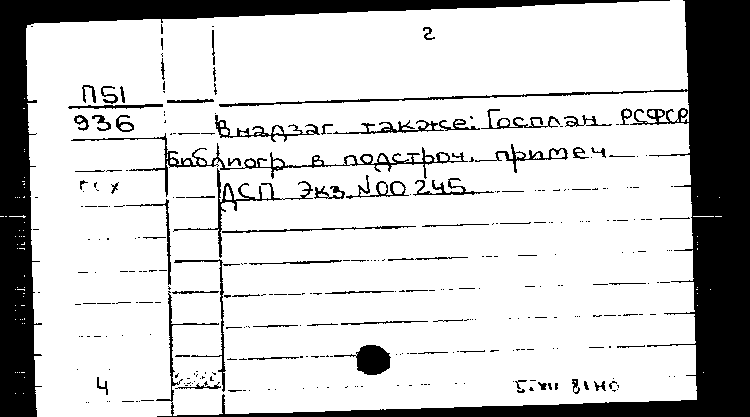 2
П51
936
В надзаг. также: Госплан РСФСР
Библиогр. в подстроч. примеч.
ДСП Экз. N00245.
4